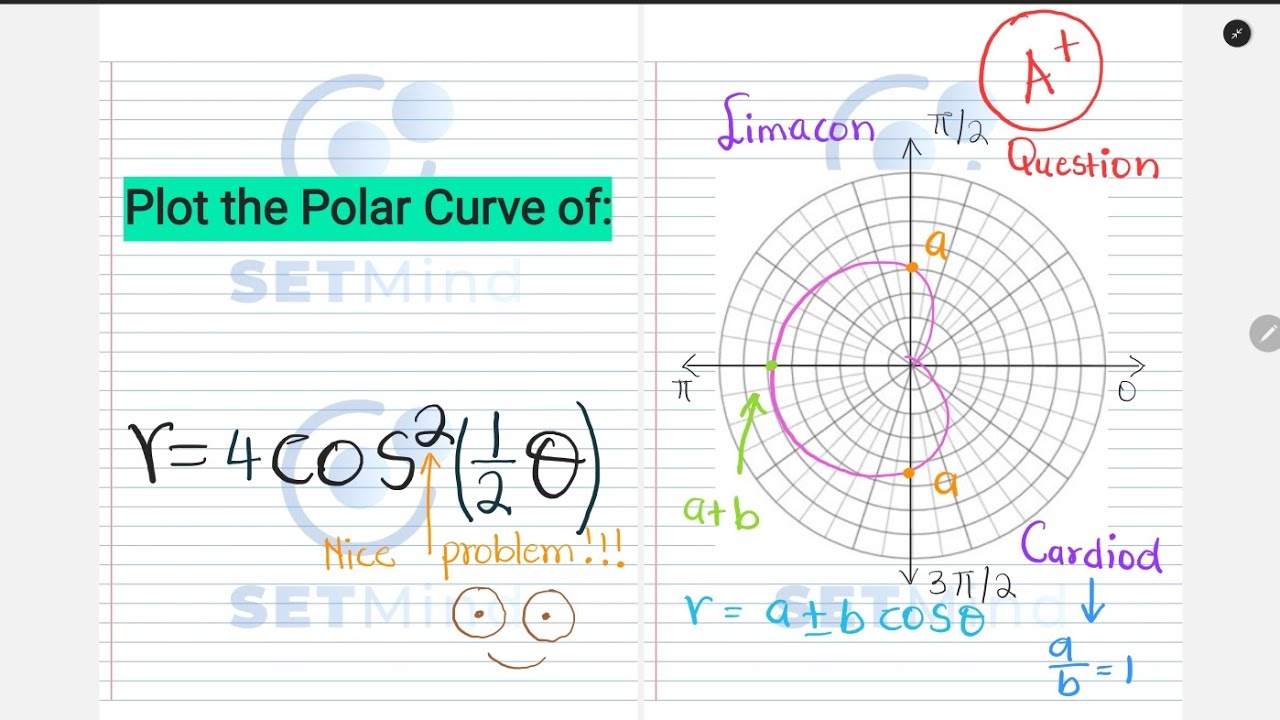 Plot the Polar Curve of:
SETMind
r = 4 cos²(1/2 θ)
Nice problem!!!
SETMind
A+
Question
Limacon
π/2
a
π
0
a+b
a
Cardiod
3π/2
SETMind
r = a ± b cosθ
a/b = 1